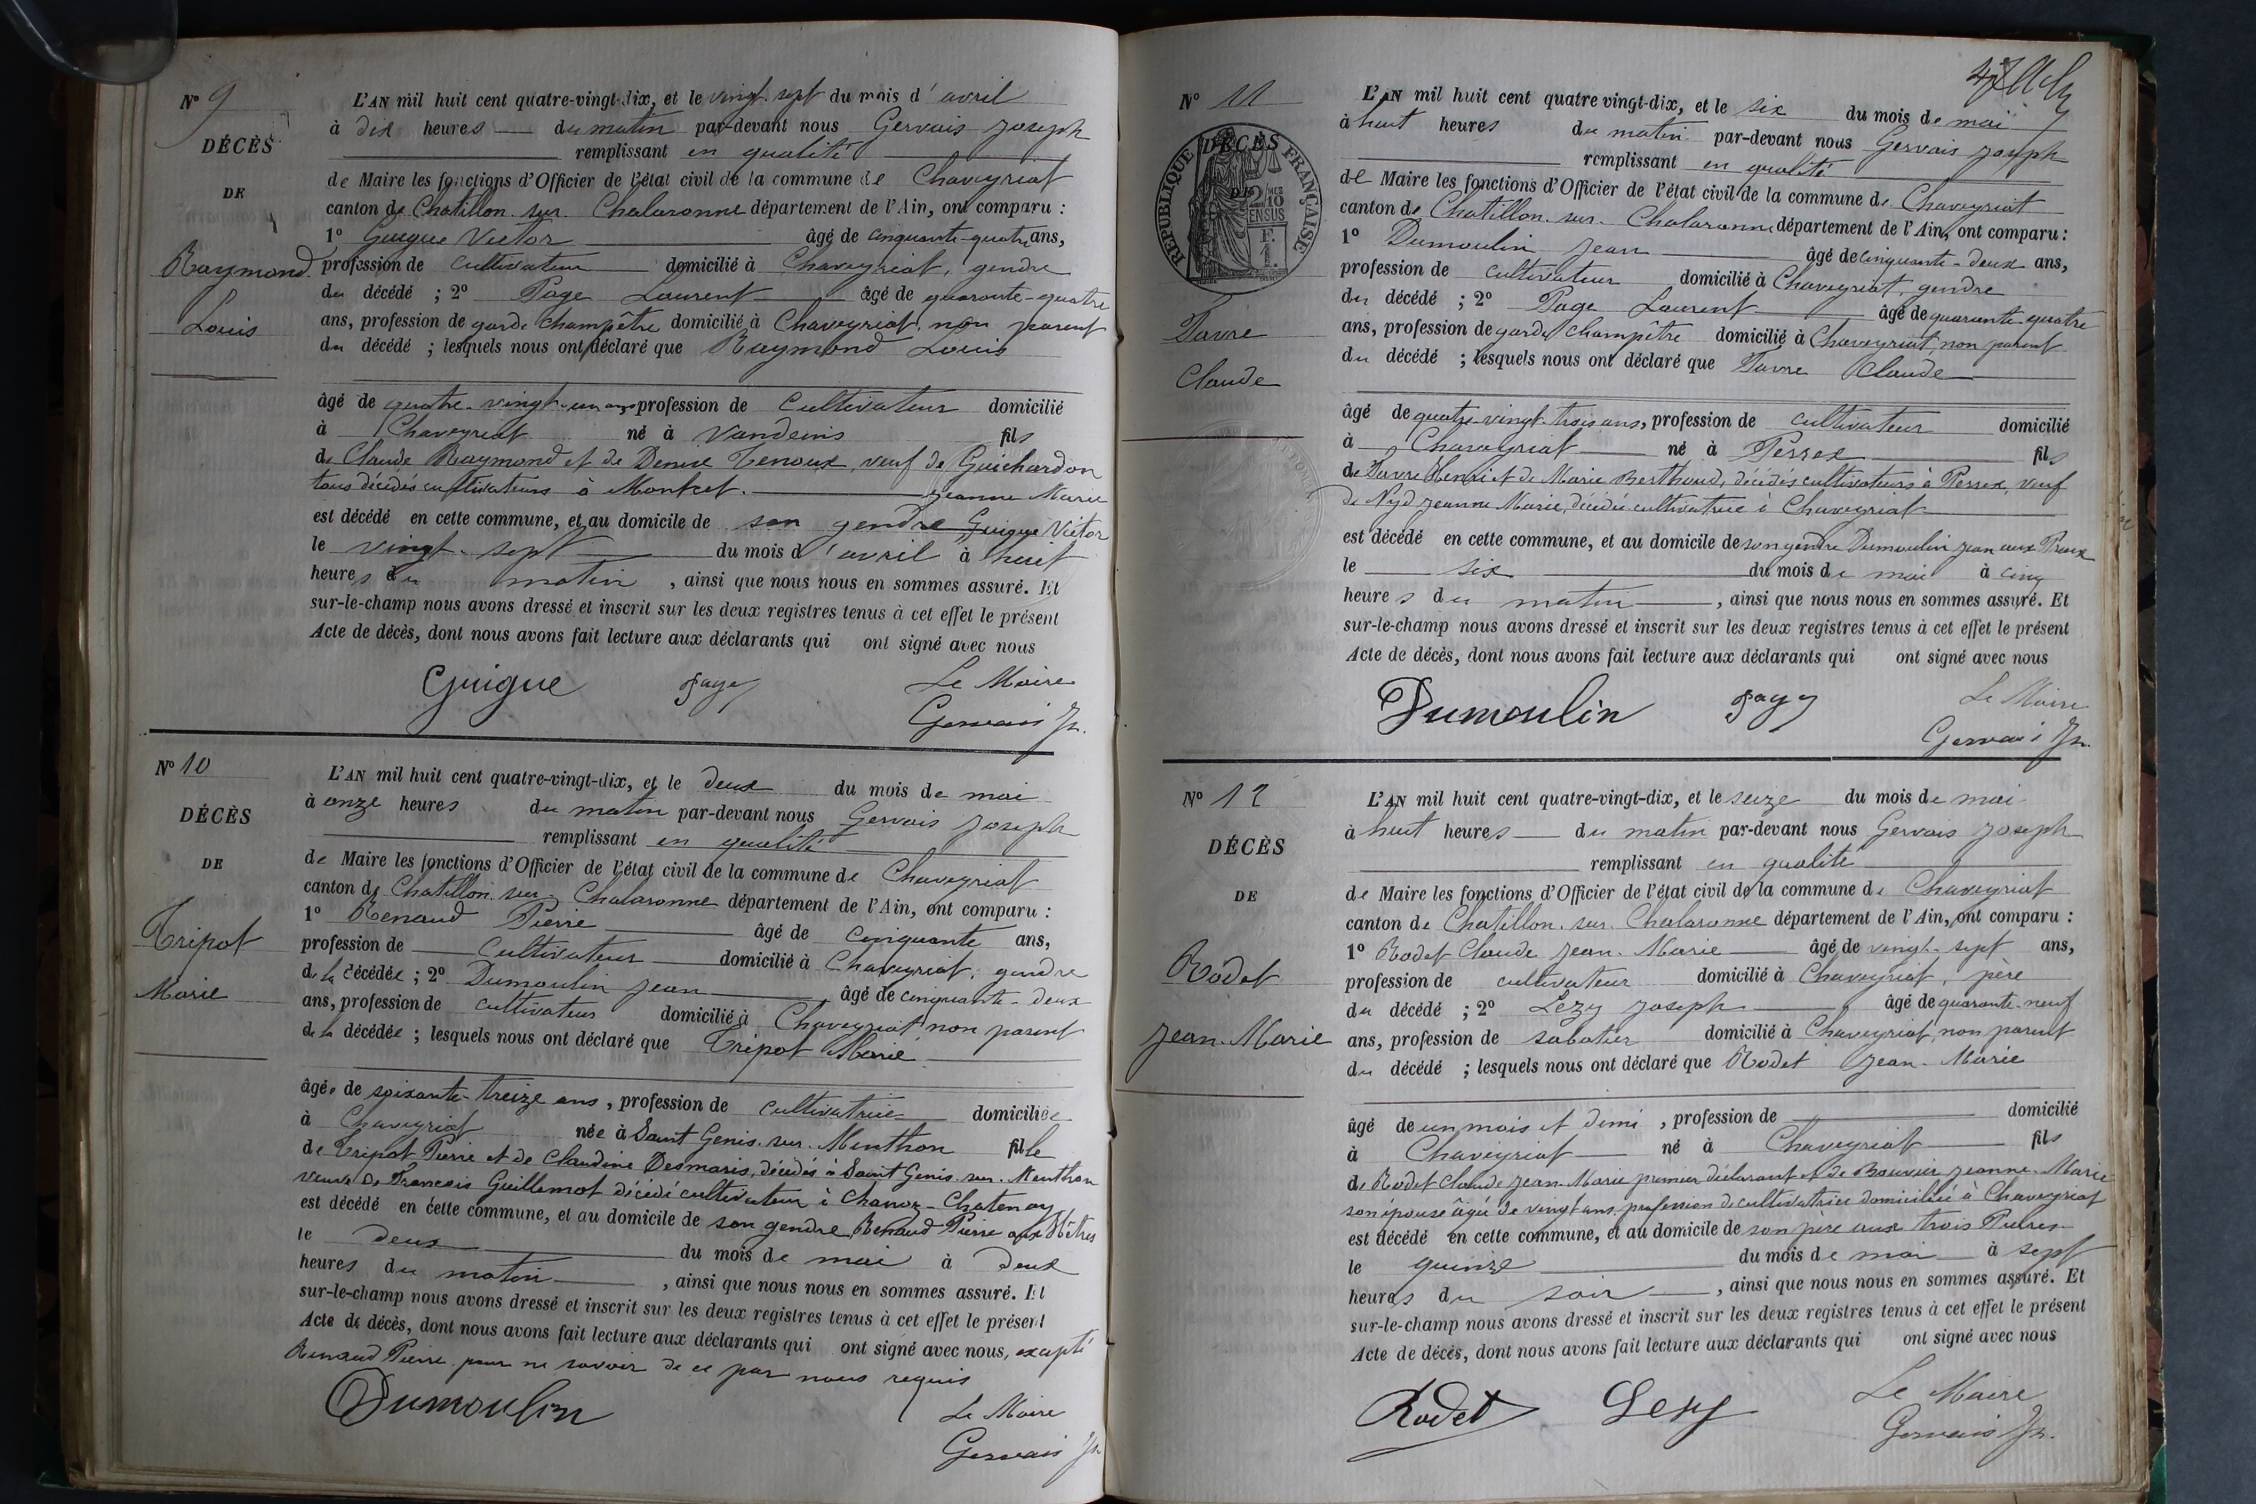 Nº 9
DÉCÈS
DE
Raymond
Louis
L'AN mil huit cent quatre-vingt-dix, et le vingt-sept du mois d'avril
à dix heures du matin par-devant nous Gervais Joseph
remplissant en qualité
de Maire les fonctions d'Officier de l'état civil de la commune de Chaveyriat
canton de Chatillon-sur-Chalaronne département de l'Ain, ont comparu :
1º Guigue Victor âgé de cinquante-quatre ans,
profession de cultivateur domicilié à Chaveyriat, gendre
du décédé ; 2º Page Laurent âgé de quarante-quatre
ans, profession de garde champêtre domicilié à Chaveyriat, non parent
du décédé ; lesquels nous ont déclaré que Raymond Louis
âgé de quatre-vingt-un ans profession de cultivateur domicilié
à Chaveyriat né à Vandeins fils
de Claude Raymond et de Denise Tenoux, veuf de Guichardon
tous décédés cultivateurs à Montcet. Jeanne Marie
est décédé en cette commune, et au domicile de son gendre Guigue Victor
le vingt-sept du mois d'avril à huit
heures du matin, ainsi que nous nous en sommes assuré. Et
sur-le-champ nous avons dressé et inscrit sur les deux registres tenus à cet effet le présent
Acte de décès, dont nous avons fait lecture aux déclarants qui ont signé avec nous
Guigue page Le Maire
Gervais Jh.
Nº 10
DÉCÈS
DE
Tripot
Marie
L'AN mil huit cent quatre-vingt-dix, et le deux du mois de mai
à onze heures du matin par-devant nous Gervais Joseph
remplissant en qualité
de Maire les fonctions d'Officier de l'état civil de la commune de Chaveyriat
canton de Chatillon-sur-Chalaronne département de l'Ain, ont comparu :
1º Renaud Pierre âgé de cinquante ans,
profession de cultivateur domicilié à Chaveyriat, gendre
de la décédée ; 2º Dumoulin Jean âgé de cinquante-deux
ans, profession de cultivateur domicilié à Chaveyriat non parent
de la décédée ; lesquels nous ont déclaré que Tripot Marie
âgée de soixante-treize ans, profession de cultivatrice domiciliée
à Chaveyriat née à Saint Genis-sur-Menthon fille
de Tripot Pierre et de Claudine Desmaris, décédés à Saint Genis-sur-Menthon
veuve de François Guillemot décédé cultivateur à Chanoz-Chatenay
est décédé en cette commune, et au domicile de son gendre Renaud Pierre aux Hêtres
le deux du mois de mai à deux
heures du matin, ainsi que nous nous en sommes assuré. Et
sur-le-champ nous avons dressé et inscrit sur les deux registres tenus à cet effet le présent
Acte de décès, dont nous avons fait lecture aux déclarants qui ont signé avec nous, excepté
Renaud Pierre pour ne savoir de ce par nous requis
Dumoulin Le Maire
Gervais Jh
Nº 11
DÉCÈS
DE
RÉPUBLIQUE FRANÇAISE
2/10 EN SUS
Favre
Claude
L'AN mil huit cent quatre vingt-dix, et le six du mois de mai
à huit heures du matin par-devant nous Gervais Joseph
remplissant en qualité
de Maire les fonctions d'Officier de l'état civil de la commune de Chaveyriat
canton de Chatillon-sur-Chalaronne département de l'Ain, ont comparu :
1º Dumoulin Jean âgé de cinquante-deux ans,
profession de cultivateur domicilié à Chaveyriat, gendre
du décédé ; 2º Page Laurent âgé de quarante-quatre
ans, profession de garde champêtre domicilié à Chaveyriat, non parent
du décédé ; lesquels nous ont déclaré que Favre Claude
âgé de quatre-vingt-trois ans, profession de cultivateur domicilié
à Chaveyriat né à Perrex fils
de Favre Henri et de Marie Berthoud, décédés cultivateurs à Perrex, veuf
de Nyd Jeanne Marie, décédée cultivatrice à Chaveyriat
est décédé en cette commune, et au domicile de son gendre Dumoulin Jean aux
le six du mois de mai à cinq
heures du matin, ainsi que nous nous en sommes assuré. Et
sur-le-champ nous avons dressé et inscrit sur les deux registres tenus à cet effet le présent
Acte de décès, dont nous avons fait lecture aux déclarants qui ont signé avec nous
Dumoulin page Le Maire
Gervais Jh.
Nº 12
DÉCÈS
DE
Rodet
Jean-Marie
L'AN mil huit cent quatre-vingt-dix, et le seize du mois de mai
à huit heures du matin par-devant nous Gervais Joseph
remplissant en qualité
de Maire les fonctions d'Officier de l'état civil de la commune de Chaveyriat
canton de Chatillon-sur-Chalaronne département de l'Ain, ont comparu :
1º Rodet Claude Jean-Marie âgé de vingt-sept ans,
profession de cultivateur domicilié à Chaveyriat, père
du décédé ; 2º Lezy Joseph âgé de quarante-neuf
ans, profession de sabotier domicilié à Chaveyriat, non parent
du décédé ; lesquels nous ont déclaré que Rodet Jean-Marie
âgé de un mois et demi, profession de domicilié
à Chaveyriat né à Chaveyriat fils
de Rodet Claude Jean-Marie premier déclarant et de Bouvier Jeanne-Marie
son épouse âgée de vingt ans, profession de cultivatrice domiciliée à Chaveyriat
est décédé en cette commune, et au domicile de son père aux trois
le quinze du mois de mai à sept
heures du soir, ainsi que nous nous en sommes assuré. Et
sur-le-champ nous avons dressé et inscrit sur les deux registres tenus à cet effet le présent
Acte de décès, dont nous avons fait lecture aux déclarants qui ont signé avec nous
Rodet Lezy Le Maire
Gervais Jh.